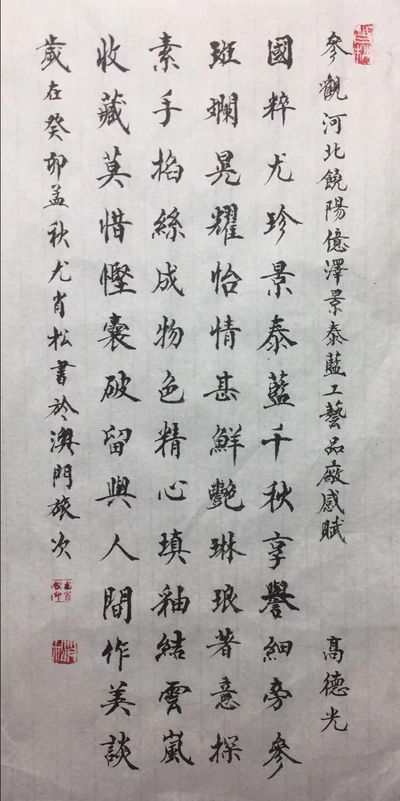 參觀河北饒陽億澤景泰藍工藝品廠感賦 高德光
國粹尤珍景泰藍千秋享譽細旁參
斑斕晃耀怡情甚鮮艷琳琅著意探
素手掐絲成物色精心填釉結雲嵐
收藏莫惜慳囊破留與人間作美談
歲在癸卯孟秋尤肖松書於澳門旅次